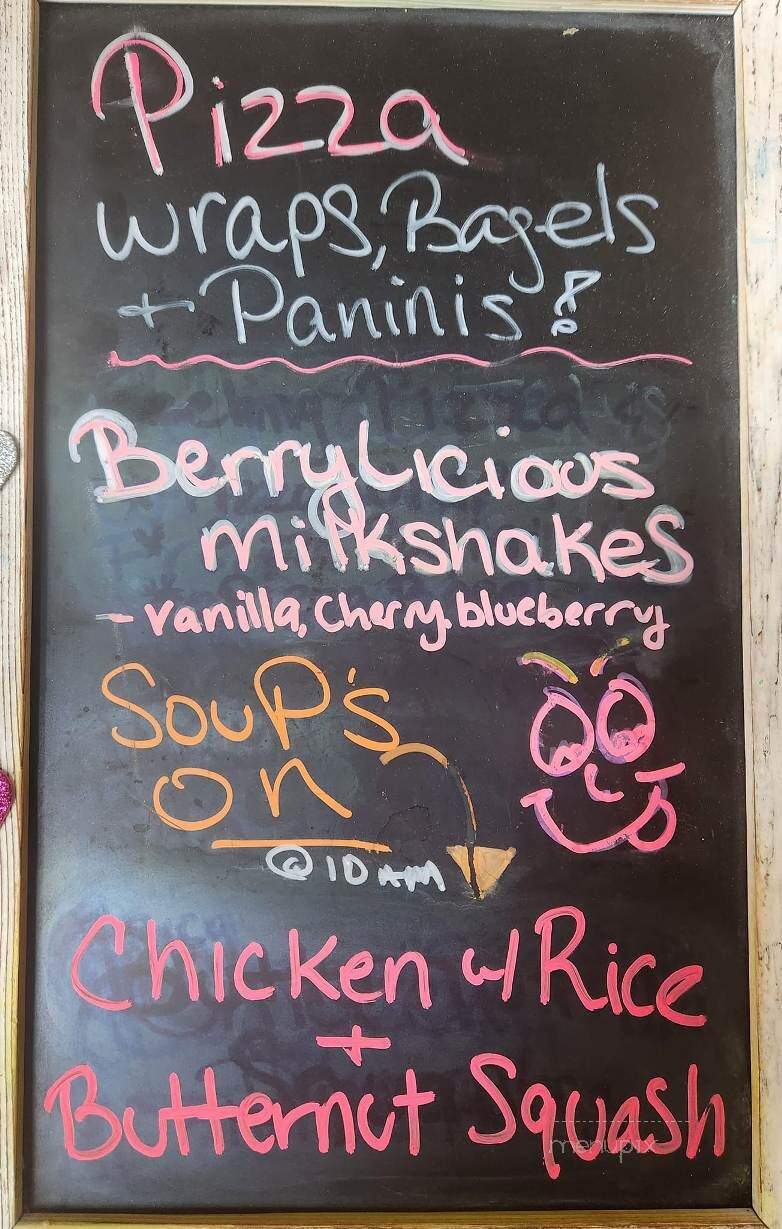 Pizza
wraps, Bagels
+ Paninis!
BerryLicious
milkshakes
- vanilla, cherry, blueberry
SouP's
on
@ 10 AM
Chicken w/ Rice
+
Butternut Squash
menupix